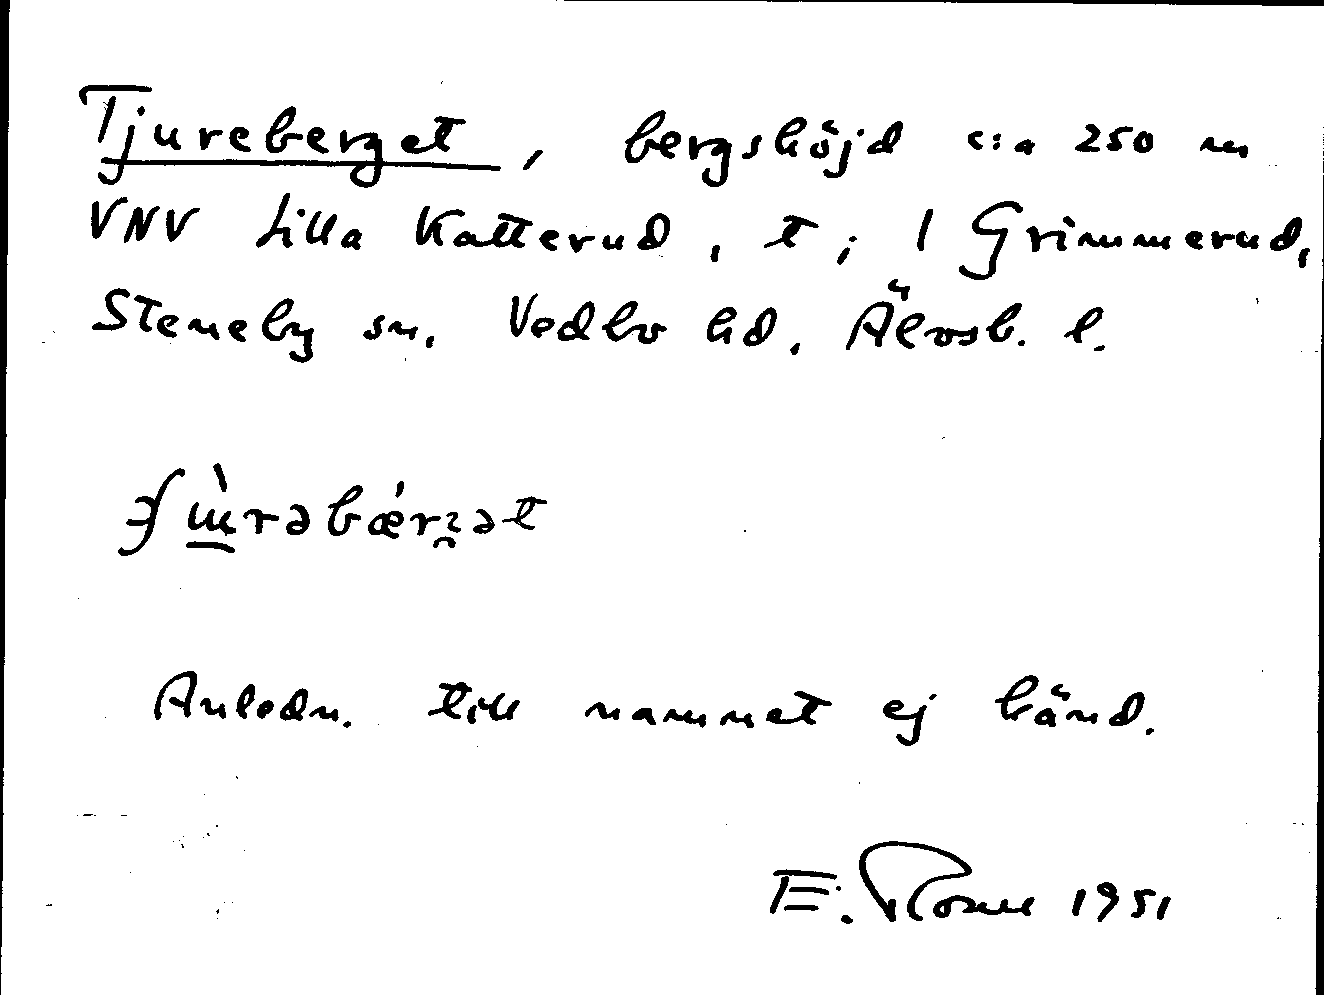 Tjureberget, bergshöjd c:a 250 m
VNV Lilla Katterud, t; 1 Grimmerud,
Steneby sn. Vedbo hd. Älvsb. l.
Anledn. till namnet ej känd.
E. 1951